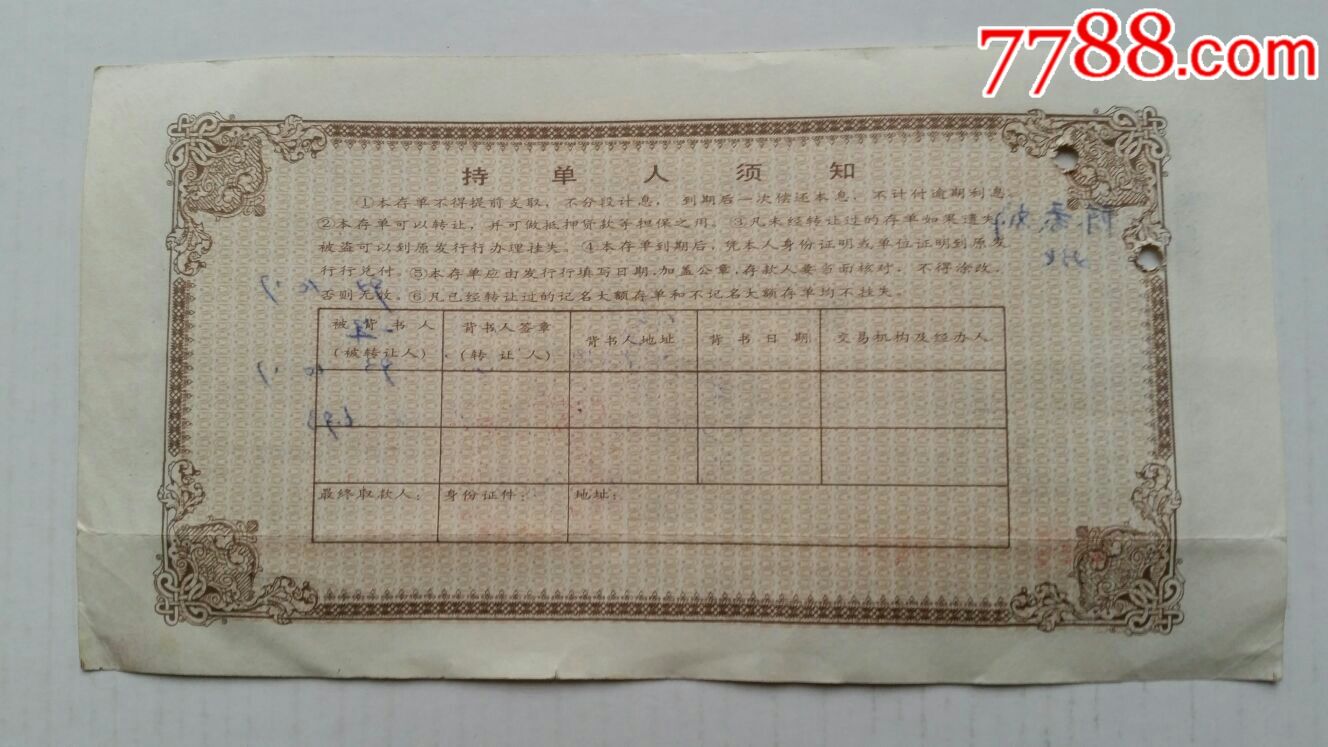 7788.com
持单人须知
①本存单不得提前支取，不分段计息，到期后一次偿还本息，不计付逾期利息。
②本存单可以转让，并可做抵押贷款等担保之用。③凡未经转让过的存单如果遗失、
被盗可以到原发行行办理挂失。④本存单到期后，凭本人身份证明或单位证明到原发
行行兑付。⑤本存单应由发行行填写日期，加盖公章，存款人要当面核对，不得涂改，
否则无效。⑥凡已经转让过的记名大额存单和不记名大额存单均不挂失。
被背书人 背书人签章 背书人地址 背书日期 交易机构及经办人
(被转让人) (转让人)
最终取款人： 身份证件： 地址：